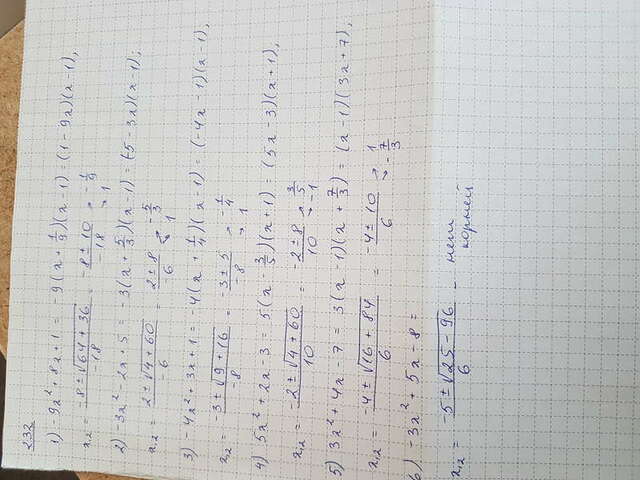 232
1) -9x² + 8x + 1 = -9(x + 1/9)(x - 1) = (1 - 9x)(x - 1),
x₁,₂ = (-8 ± √(64 + 36))/(-18) = (-8 ± 10)/(-18) → -1/9 ↘ 1
2) -3x² - 2x + 5 = -3(x + 5/3)(x - 1) = (-5 - 3x)(x - 1);
x₁,₂ = (2 ± √(4 + 60))/(-6) = (2 ± 8)/(-6) ↗ -5/3 ↘ 1
3) -4x² + 3x + 1 = -4(x + 1/4)(x - 1) = (-4x - 1)(x - 1),
x₁,₂ = (-3 ± √(9 + 16))/(-8) = (-3 ± 5)/(-8) → -1/4 ↘ 1
4) 5x² + 2x - 3 = 5(x - 3/5)(x + 1) = (5x - 3)(x + 1),
x₁,₂ = (-2 ± √(4 + 60))/10 = (-2 ± 8)/10 ↗ 3/5 ↘ -1
5) 3x² + 4x - 7 = 3(x - 1)(x + 7/3) = (x - 1)(3x + 7),
x₁,₂ = (-4 ± √(16 + 84))/6 = (-4 ± 10)/6 ↗ 1 ↘ -7/3
6) -3x² + 5x - 8 =
x₁,₂ = (-5 ± √(25 - 96))/6 - нет
корней